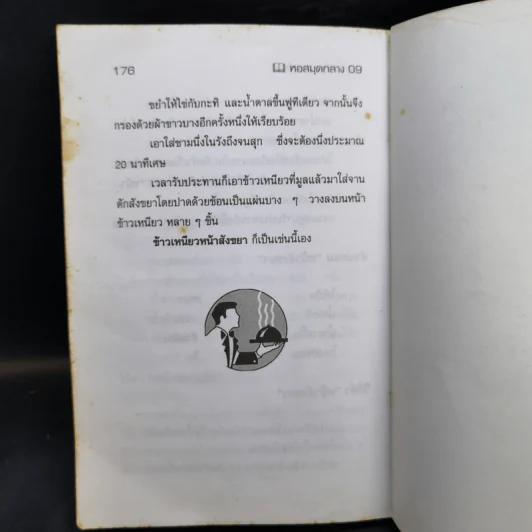 176
หอสมุดกลาง 09
ขยำให้ไข่กับกะทิ และน้ำตาลขึ้นฟูทีเดียว จากนั้นจึง
กรองด้วยผ้าขาวบางอีกครั้งหนึ่งให้เรียบร้อย
เอาใส่ชามนึ่งในรังถึงจนสุก ซึ่งจะต้องนึ่งประมาณ
20 นาทีเศษ
เวลารับประทานก็เอาข้าวเหนียวที่มูลแล้วมาใส่จาน
ตักสังขยาโดยปาดด้วยช้อนเป็นแผ่นบาง ๆ วางลงบนหน้า
ข้าวเหนียว หลาย ๆ ชิ้น
ข้าวเหนียวหน้าสังขยา ก็เป็นเช่นนี้เอง